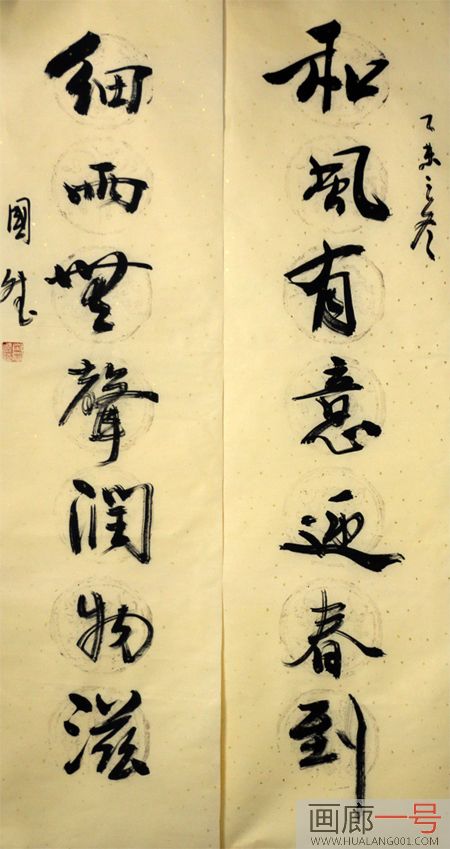 乙未之冬
和風有意迎春到
細雨無聲潤物滋
國
画廊一号
WWW.HUALANG001.COM